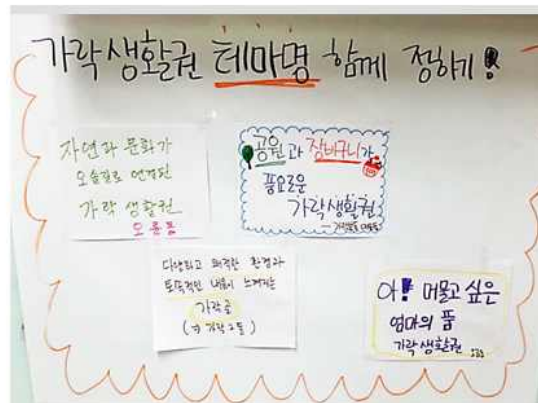 가락생활권 테마명 함께 정하기!
자연과 문화가
오솔길로 연결된
가락 생활권
오륜동
공원과 장바구니가
풍요로운
가락생활권
다양하고 쾌적한 환경과
토속적인 내음이 느껴지는
가락골
아! 머물고 싶은
엄마의 품
가락생활권